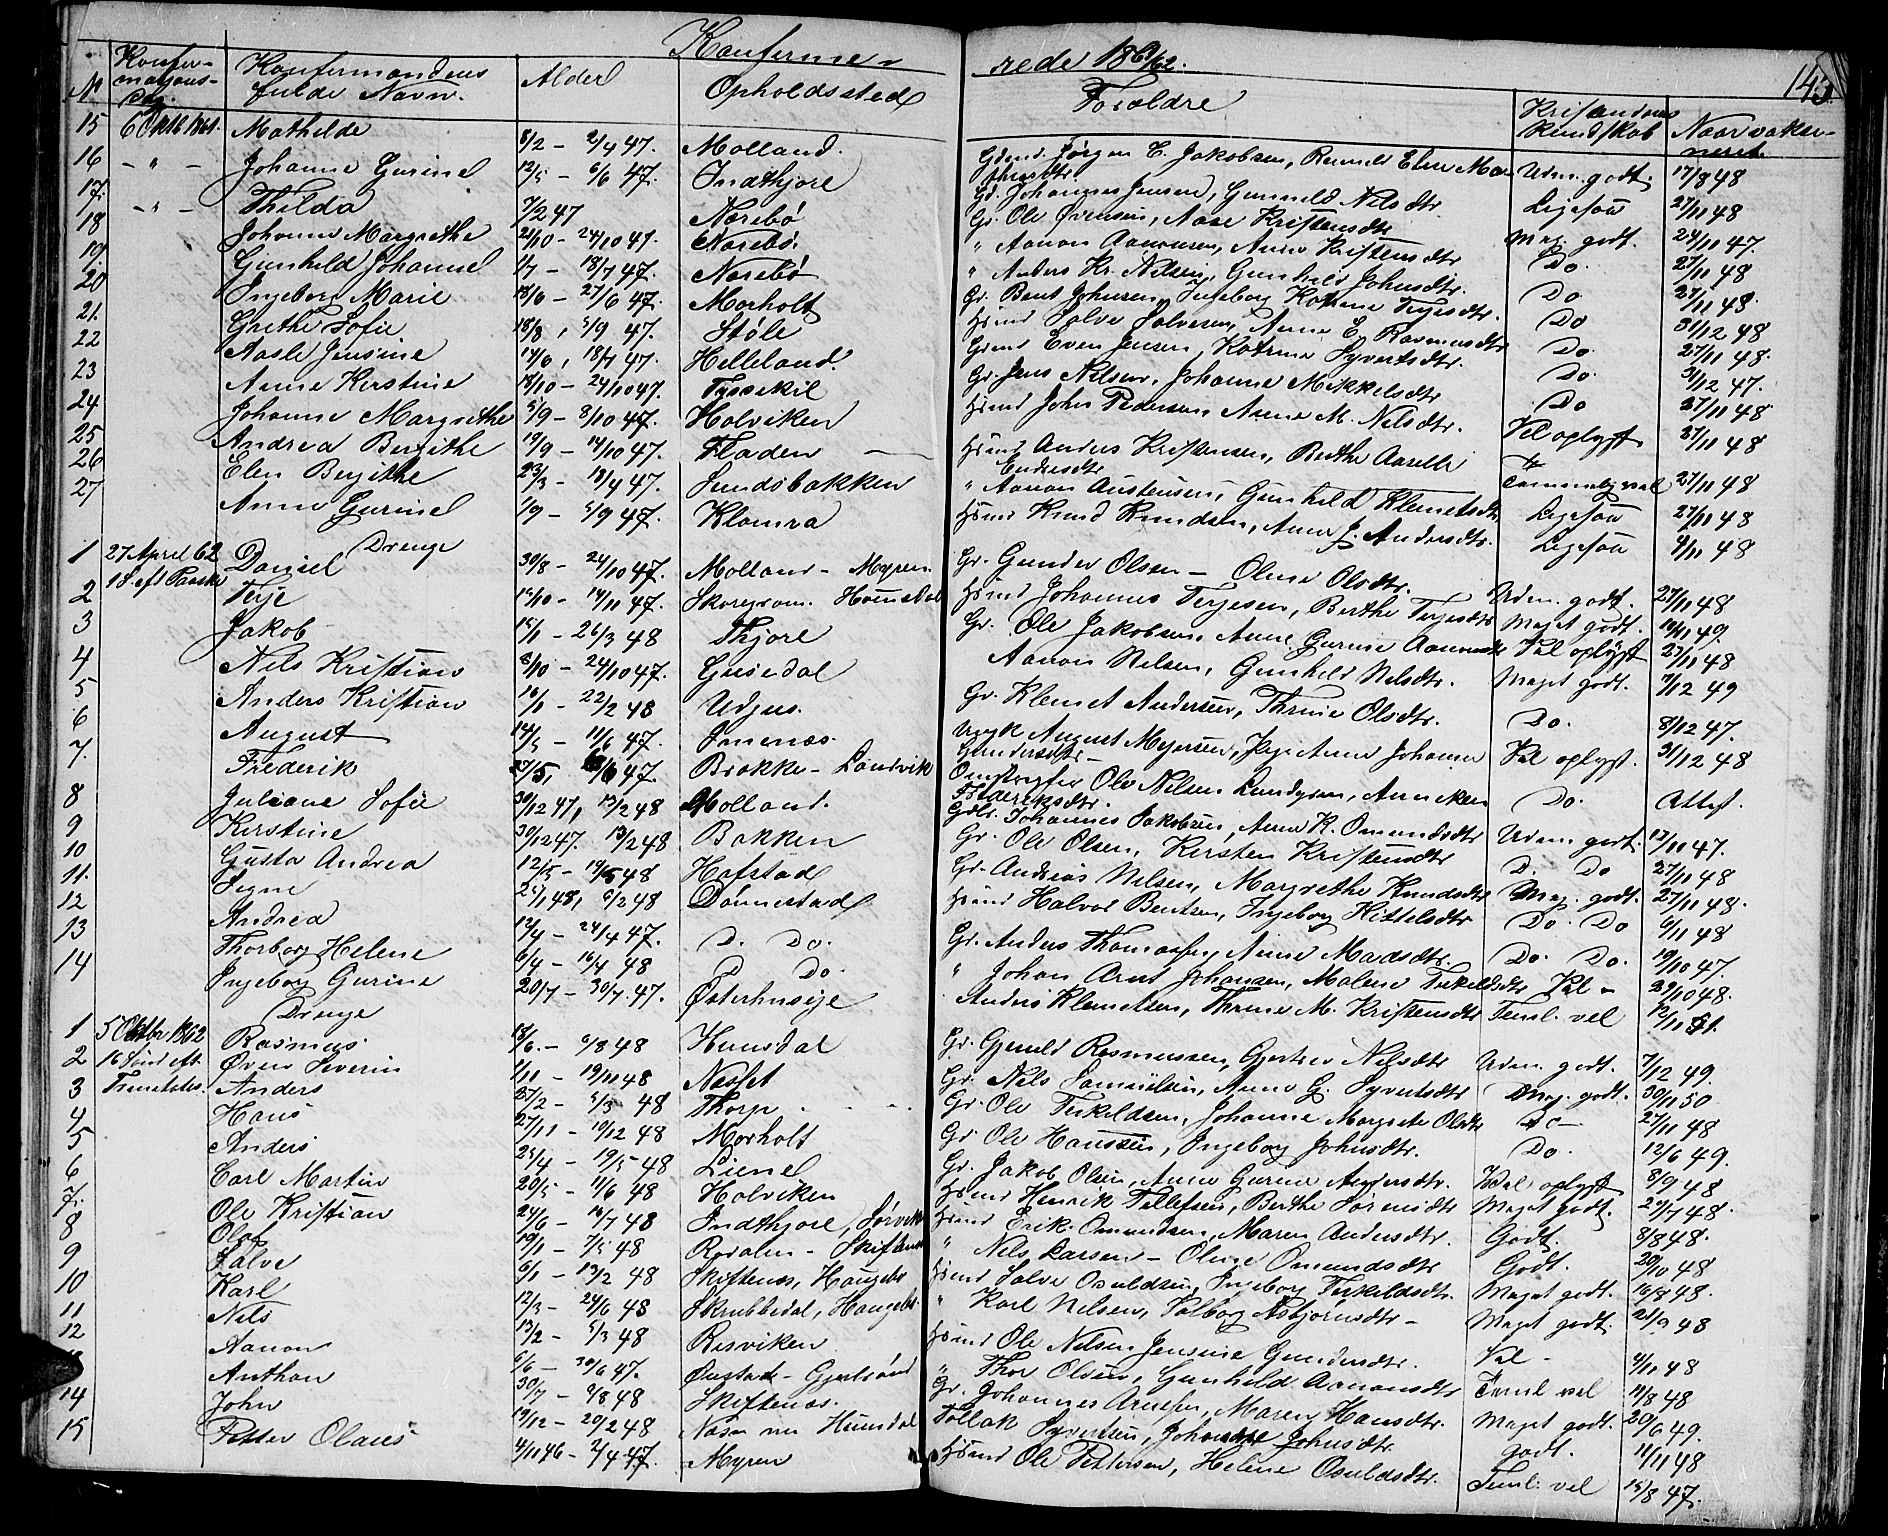 Konferme-
rede 1861/62.
143.
N Konfer-mations-Dag. Konfermandens fulde Navn. Alder Opholdssted Forældre Kristendoms Kundskab Naar vaksineret
15 6 Oktb 1861. Mathilde 8/2 - 2/4 47. Molland. Gdmd Jørgen C. Jakobsen, Elen Udm. godt. 17/8 48
16 - " - Johanne Gurine 12/5 - 6/6 47. Indthjore Gr. Johannes Jensen, Gunnild Nilsdtr. Ligesaa 27/11 48
17. - " - Thilda 7/2 47 Narebø Gr. Ole Øvensen, Aase Kristensdtr Meg. godt. 24/11 47.
18 Johanne Margrethe 21/10 - 24/10 47. Narebø. " Aanon Aanonsen, Anne Kristensdtr Do. 27/11 48
19. Gunhild Johanne 1/7 - 18/7 47. Narebø " Anders Kr. Nilsen, Gunhild Johnsdtr. Do 27/11 48.
20 Ingeborg Marie 18/6 - 27/6 47. Morholt Gr. Bent Johnsen, Ingeborg Katrine Terjesdtr. Do 31/12 48
21. Grethe Sofie 18/8, 5/9 47. Støle Hsmd Salve Salvesen, Anne E. Rasmusdtr Do. 27/11 48.
22 Aasle Jensine 14/6, 18/7 47. Helleland. Grmd Even Jensen, Katrine Syvertsdtr. Do. 31/12 47.
23 Anne Kirstine 18/10 - 24/10 47. Tysekil Gr. Jens Nilsen, Johanne Mikkelsdtr Do 27/11 48
24. Johanne Margrethe 5/9 - 8/10 47. Holviken Hsmd John Pedersen Anne M. Nilsdtr. Vel oplyst 27/11 48
25 Andrea Bergithe 19/9 - 14/10 47. Fladen Hsmd Anders Kristensen, Berthe Aaselle Endresdtr
26 Elen Bergithe 23/3 - 18/4 47. Sundsbakken " Aanon Austensen, Gunhild Klemetsdtr Temmelig vel 27/11 48
27 Anne Gurine 1/9 - 5/9 47. Klomra Hsmd Knud Knudsen, Anne J. Andersdtr. Ligesaa 27/11 48
Ligesaa 4/11 48
Drenge
1 27 April 62 Daniel 30/8 - 24/10 47. Molland - Myren. Gr. Gunder Olsen - Oline Olsdtr. Udm. godt. 27/11 48
2 1 S eft Paaske Terje 15/10 - 14/11 47. Skoregrom. Homsdal Hsmd Johannes Terjesen, Berthe Terjesdtr Meget godt. 10/11 49.
3 Jakob 15/1 - 26/3 48 Thjore Gr. Ole Jakobsen, Anne Gurine Aanonsdtr Vel oplyst 23/11 48
4 Nils Kristian 8/10 - 24/10 47. Gusedal Aanon Nilsen, Gunhild Nilsdtr. Meget godt. 7/12 49
5 Anders Kristian 16/1 - 22/2 48 Udgus. Gr. Klemet Andersen, Thrine Olsdtr. Do. 8/12 47.
6 August 14/5 - 11/6 47. Smenæs. August Meyersen, Anne Johanne Gundersdtr - Vel oplyst. 31/12 48
7. Frederik 27/5, /6 47. Brokke - Landvik Ole Nilsen Lundgren, Anneken Frederiksdtr. Do. Attest.
8 Juliane Sofie 30/12 47, 13/2 48 Molland. Gdbr. Johannes Jakobsen, Anne K. Omundsdtr Udm. godt. 17/11 47.
9 Kirstine 30/12 47. 13/2 48 Bakken Gr. Ole Olsen, Kirsten Kristensdtr D. Do 27/11 48
10 Gusta Andrea 12/5 - 14/5 48 Hafstad Gr. Andreas Nilsen, Margrethe Knudsdtr Meg. godt. 27/11 48.
11. Signe 25/1 48, 6/2 48 Dønnestad Hsmd Halvor Bentsen, Ingeborg Kittelsdtr Do Do 6/11 48
12 Andrea 12/4 - 24/4 47. D. Do. Gr. Anders Thomassen, Anne Madsdtr. Do. Do. 19/10 47.
13 Thorborg Helene 6/4 - 16/4 48 D Do. " Johan Arnt Johansen, Malene Terkildsdtr Vel - 29/10 48.
14 Ingeborg Gurine 20/7 - 30/7 47. Østerhusøe Anders Klemetsen, Thrine M. Kristensdtr Teml. vel 12/11 51.
Drenge
1 5 Oktbr 1862 Rasmus. 18/6. - 6/8 48 Humsdal Gr. Gjeruld Rasmussen, Gjertrud Nilsdtr Udm. godt. 7/12 49.
2 16 Sønd eft. Øven Severin 1/11 - 19/11 48 Næslet Gr. Nils Samuelsen, Anne G. Syvertsdtr Meg. godt. 30/1 50
3 Trinetatis. Anders 27/2 - 5/3 48 Thorp Gr. Ole Terkeldsen, Johanne Margrete Olsdtr do - 27/11 48
4 Hans 27/11 - 10/12 48 Morholt Gr Ole Hanssen, Ingeborg Johnsdtr. Do. 12/6 49.
5 Anders 25/4 - 19/5 48 Liene Gr. Jakob Olsen, Anne Gurine Andersdtr. Vel oplyst 8/9 48
6 Carl Martin 20/5 - 11/6 48 Holviken Hsmd Henrik Tellefsen, Berthe Sørensdtr Meget godt. 27/7 48.
7. Ole Kristian 24/6 - 16/7 48 Indthjore, Sørvik Hsmd Erik Omundsen, Maren Andersdtr. Godt. 8/8 48.
8 Olaf 19/1 - 7/5 48 Rosalen - Skiftenes " Nils Larsen - Oline Omundsdtr Godt. 20/10 48
9 Salve 6/1 - 13/2 48 Skiftenes, Haugebs Hsmd Salve Osuldsen, Ingeborg Terkildsdtr. Meget godt. 16/8 48.
10 Karl 12/3 - 24/6 48 Skrubbedal, Haugebs " Karl Nilsen, Valborg Asbjørnsdtr - Meget godt. 21/9 48
11 Nils 13/2 - 5/3 48 Resviken Hsmd Ole Nilsen Jensine Gundersdtr. Vel - 4/11 48
12 Aanon 6/6 - 30/6 47. Øvstad - " Thor Olsen, Gunhild Aanonsdtr Teml vel 14/8 48
Anthon 30/7 - 6/8 48 Skiftenes. Gr. Johannes Maren Hansdtr. Meget godt. 20/6 49.
14 John 19/12 - 20/2 48 Humsdal Tollak Syvertsen, Johanne Johnsdtr godt. 11/11 48
15 Petter Olaus 4/11 46 - 2/4 47. Myren Hsmd Ole Pettersen, Helene Osuldsdtr. Teml. vel 15/8 47.